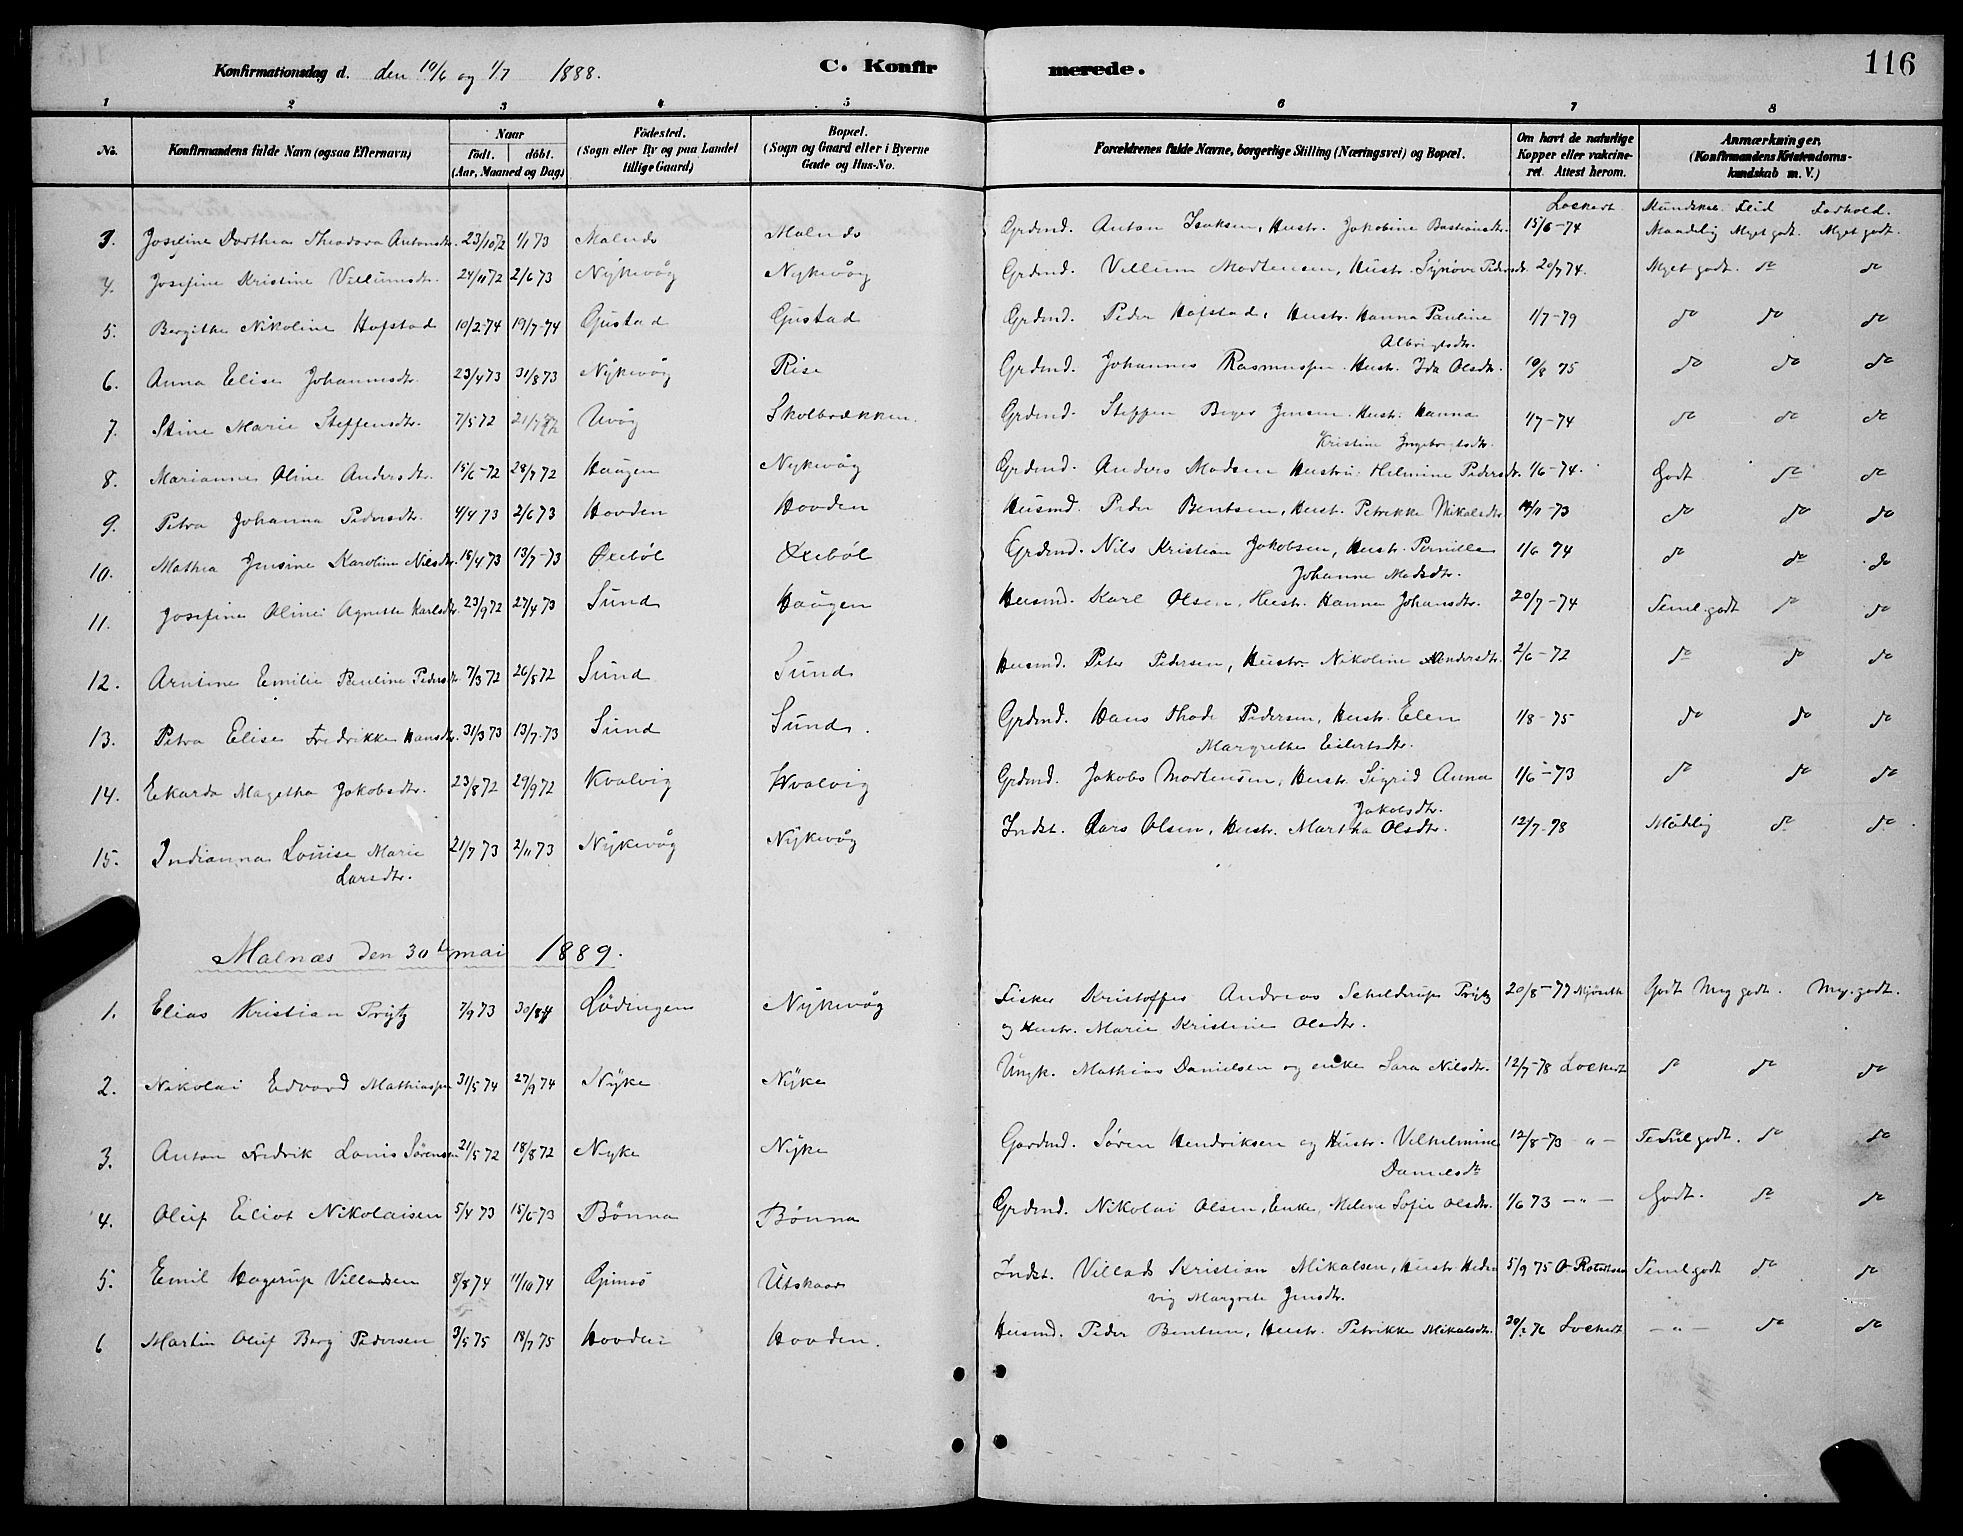 116
Konfirmationsdag d. den 10/6 og 1/7 1888. C. Konfirmerede.
1 2 3 4 5 6 7 8
No. Konfirmandens fulde Navn (ogsaa Efternavn) Naar født. døbt. (Aar, Maaned og Dag) Födested. (Sogn eller By og paa Landet tillige Gaard) Bopæl. (Sogn og Gaard eller i Byerne Gade og Hus-No. Forældrenes fulde Navne, borgerlige Stilling (Næringsvei) og Bopæl. Om havt de naturlige Kopper eller vakcineret. Attest herom. Anmærkninger. (Konfirmandens Kristendomskundskab m. V.)
Lockert. Kundskab Flid Forhold.
3. Josefine Dorthea Theodora Antonsdr. 23/10 72 1/1 73 Malnes Malnes Grdmd. Anton Isaksen, Hustr. Jakobine Bastiansdr. 15/6-74 Maadelig Myet godt. Myet godt.
4. Josefine Kristine Villumsdr. 24/11 72 2/6 73 Nykevåg Nykevåg Grdmd. Villum Mortensen, Hustr. Synøve Pedersdr. 20/7 74. Myet godt. do do
5. Bergithe Nikoline Hofstad 10/2-74 19/7-74 Gustad Gustad Grdmd. Peder Hofstad, Hustr. Hanna Pauline Albrigtsdr. 1/7-79 do do do
6. Anna Elise Johannsdr. 23/4 73 31/8 73 Nykevåg Rise Grdmd. Johannes Rasmussen Hustr. Ida Olsdr. 10/8 75 do do do
7. Stine Marie Steffensdr. 7/5 72 21/7 72 Uvåg Skolbrækken Grdmd. Steffen Beyer Jensen Hustr. Hanna Kristine Ingebrigtsdr. 1/7-74 do do do
8. Marianne Oline Andersdr. 15/6-72 28/7 72 Haugen Nykevåg Grdmd. Anders Madsen Hustru Helmine Pedersdr. 1/6-74. Godt do do
9. Petra Johanna Pedersdr. 4/4 73 2/6 73 Hovden Hovden Husmd. Peder Bentsen, Hustr. Petrikke Mikalsdr. /11-73 do do do
10. Mathea Jensine Karoline Nilsdr. 18/4 73 13/7-73 Oxebøl Oxebøl Grdmd. Nils Kristian Jakobsen, Hustr. Pernille Johanne Madsdr. 1/6 74 do do do
11. Josefine Oline Agnette Karlsdr. 23/9 72 27/4 73 Sund Haugen Husmd. Karl Olsen, Hustr. Hanna Johansdr. 20/7-74 Teml. godt do do
12. Arntine Emilie Pauline Pedersdr 7/3 72 26/5 72 Sund Sund Husmd. Peter Pedersen, Hustr. Nikoline Andersdr. 2/6-72 do do do
13. Petra Elise Fredrikke Hansdr. 31/3 73 13/7-73 Sund Sund. Grdmd. Hans Thode Pedersen, Hustr. Elen Margrethe Eilertsdr. 1/8-75 do do do
14. Ekarda Magetha Jakobsdtr. 23/8 72 29/9 72 Kvalvig Kvalvig Grdmd. Jakobs Mortensen, Hustr. Sigrid Anna Jakobsdtr. 1/6-73 do do do
15. Indianna Louise Marie Larsdtr. 21/7 73 2/11 73 Nykevåg Nykevåg Indst. Lars Olsen, Hustr. Martha Olsdtr. 12/7-78 Mådelig do do
Malnæs den 30te mai 1889.
1. Elias Kristian Prytz 7/9 73 30/8 74 Lödingen Nykevåg Fisker Kristoffer Andreas Schelderup Prytz og Hustr. Marie Kristine Olsdtr. 20/8-77 Godt Meg godt. Meg. godt.
2. Nikolai Edvard Mathiassen 31/5 74 27/9 74 Nyke Nyke Ungk. Mathias Danielsen og enke Sara Nilsdtr. 12/7-78 Lockert do do do
3. Anton Fredrik Louis Sörensen 21/5 72 18/8 72 Nyke Nyke Gardmd. Søren Hendriksen og Hustr. Vilhelmine Danielsdtr 12/8-73 -"- Teml godt. do do
4. Oluf Eliot Nikolaisen 5/4 73 15/6-73 Bönna Bönna Grdmd. Nikolai Olsen, Enke, Milene Sofie Olsdtr. 1/6 73 -"- Godt. do do
5. Emil Hagerup Villadsen 8/8 74 11/10 74 Gimsö Utskaar Indst. Villads Kristian Mikalsen, Hustr Hedevig Margrete Jensdtr. 5/9 75 Teml godt do do
6 Martin Oluf Berg Pedersen 3/5 75 18/7 75 Hovden Hovden. Husmd. Peder Bentsen, Hustr. Petrikke Mikalsdtr. 76 Lockert -"- do do